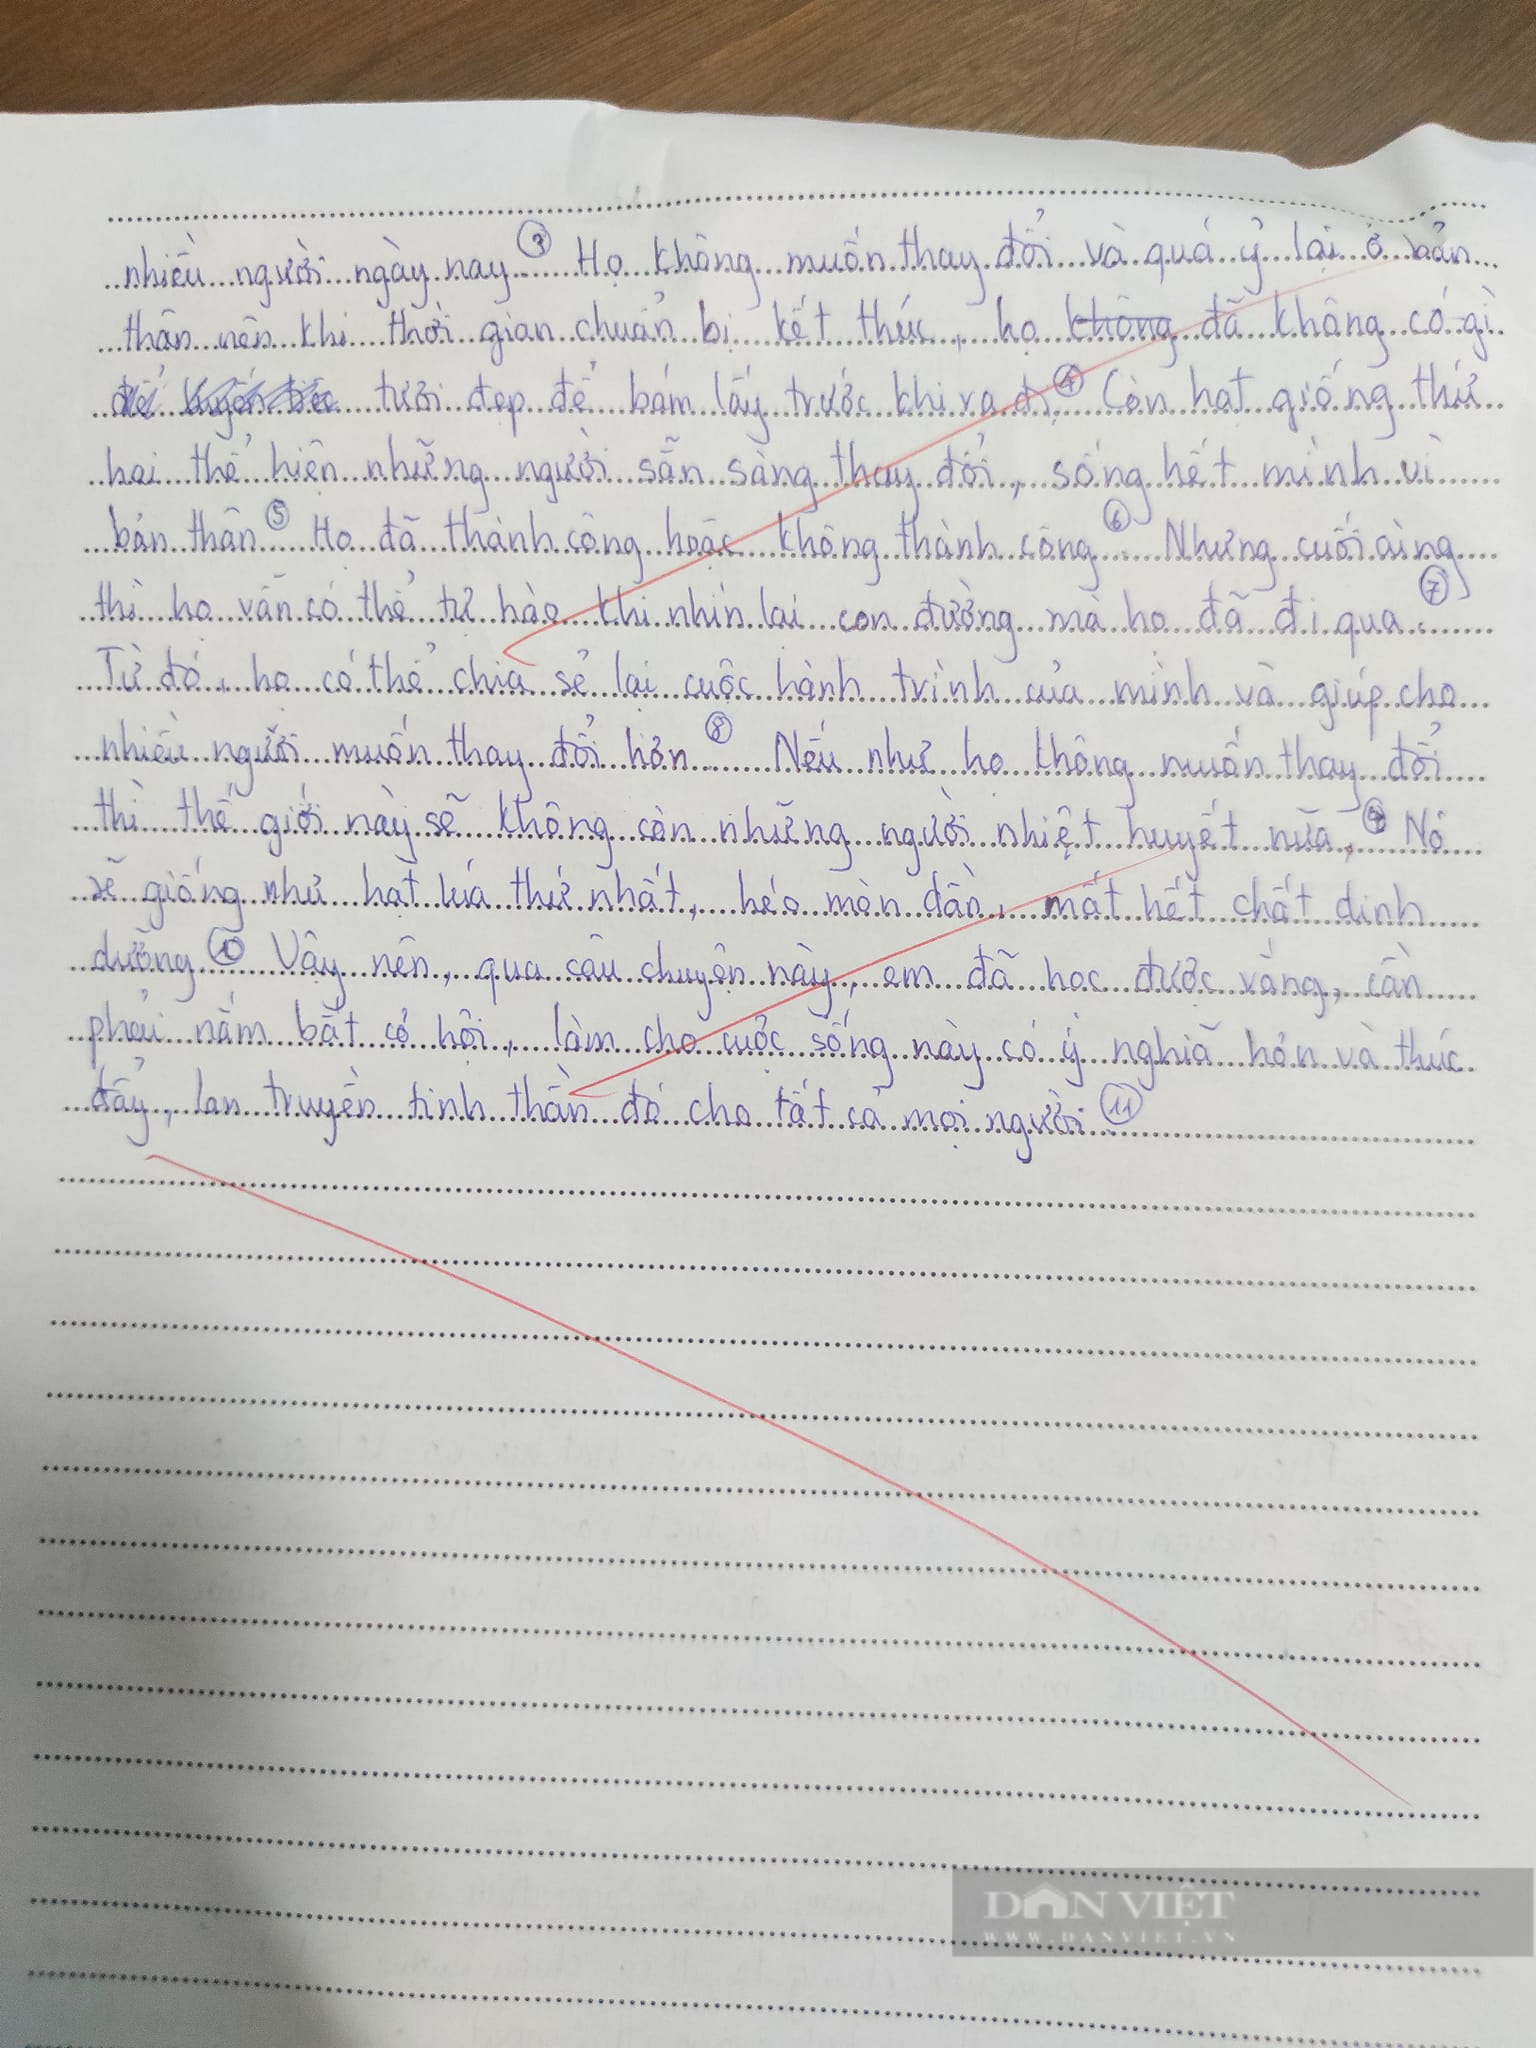 nhiều người ngày nay. ③ Họ không muốn thay đổi và quá ỷ lại ở bản
thân nên khi thời gian chuẩn bị kết thúc, họ không đã không có gì
để tươi đẹp để bám lấy trước khi ra đi. ④ Còn hạt giống thứ
hai thể hiện những người sẵn sàng thay đổi, sống hết mình vì
bản thân ⑤. Họ đã thành công hoặc không thành công ⑥. Nhưng cuối cùng
thì họ vẫn có thể tự hào khi nhìn lại con đường mà họ đã đi qua. ⑦
Từ đó, họ có thể chia sẻ lại cuộc hành trình của mình và giúp cho
nhiều người muốn thay đổi hơn ⑧. Nếu như họ không muốn thay đổi
thì thế giới này sẽ không còn những người nhiệt huyết nữa. ⑨ Nó
sẽ giống như hạt lúa thứ nhất, héo mòn dần, mất hết chất dinh
dưỡng ⑩. Vậy nên, qua câu chuyện này, em đã học được rằng, cần
phải nắm bắt cơ hội, làm cho cuộc sống này có ý nghĩa hơn và thúc
đẩy, lan truyền tinh thần đó cho tất cả mọi người. ⑪
DÂN VIỆT
WWW.DANVIET.VN